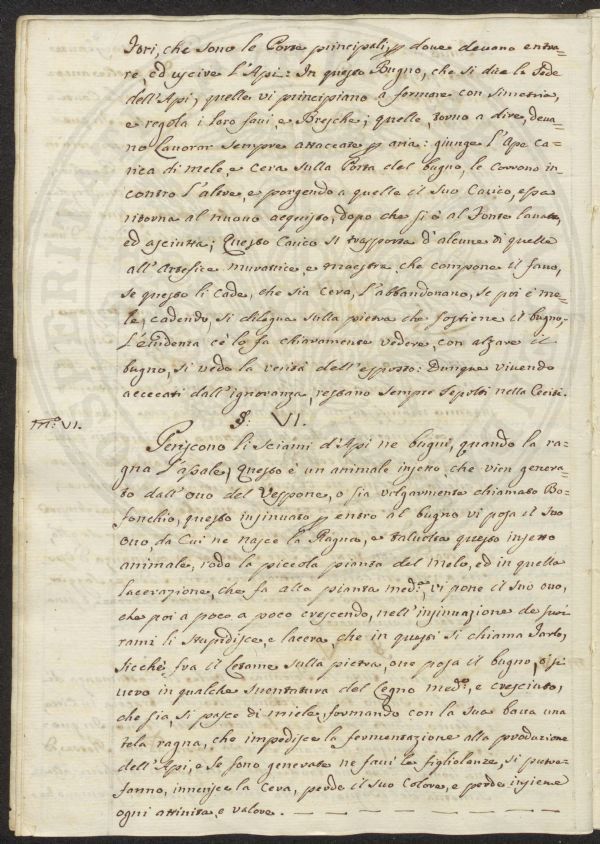 fori, che sono le Porte principali, p dove devano entra=
re, ed uscire l'Api: In questo Bugno, che si dice la Sede
dell'Api, quelle vi principiano a formare con simetria,
e regola i loro favi, e Bresche; quelle, torno a dire, deva=
no lauorar sempre attaccate p aria: giunge l'Ape ca=
rica di mele, e cera sulla Porta del bugno, le corrono in=
contro l'altre, e porgendo a quelle il suo carico, essa
ritorna al nuouo acquisto, dopo che si è al fonte lauata,
ed asciutta; Questo carico si trasporta d'alcune di quelle
all'Artefice muratrice, e maestra che compone il favo,
se questo li cade, che sia cera, l'abbandonano, se poi è me=
le, cadendo, si dilegua sulla pietra che sostiene il bugno,
l'euidenza cè lo fa chiaramente vedere, con alzare il
bugno, si vede la verità dell'esposto: Dunque viuendo
acceccati dall'ignoranza, restano sempre sepolti nella Cecità.
§: VI.
m:o VI.
Periscono li sciami d'Api ne bugni, quando la ra=
gna l'assale, Questo è un animale insetto, che vien genera=
to dall'ouo del Vespone, o sia volgarmente chiamato Bo=
fonchio, questo insinuato p entro al bugno vi posa il suo
ouo, da cui ne nasce la Ragna, e taluolta questo insetto
animale, rode la piccola pianta del melo, ed in quella
lacerazione, che fa alla pianta med:a, vi pone il suo ouo,
che poi a poco a poco crescendo, nell'insinuazione de suoi
rami li stupidisce, e lacera, che in questi si chiama Tarlo,
sicchè, fra il Letame sulla pietra, oue posa il bugno, ò
uero in qualche smontatura del Legno med:o, e cresciuto,
che sia, si pasce di miele, formando con la sua bocca una
tela ragna, che impedisce la fermentazione alla produzione
dell'Api, e se sono generate ne faui le figliolanze, si putre=
fanno, la Cera, perde il suo colore, e perde insieme
ogni attività, e valore.